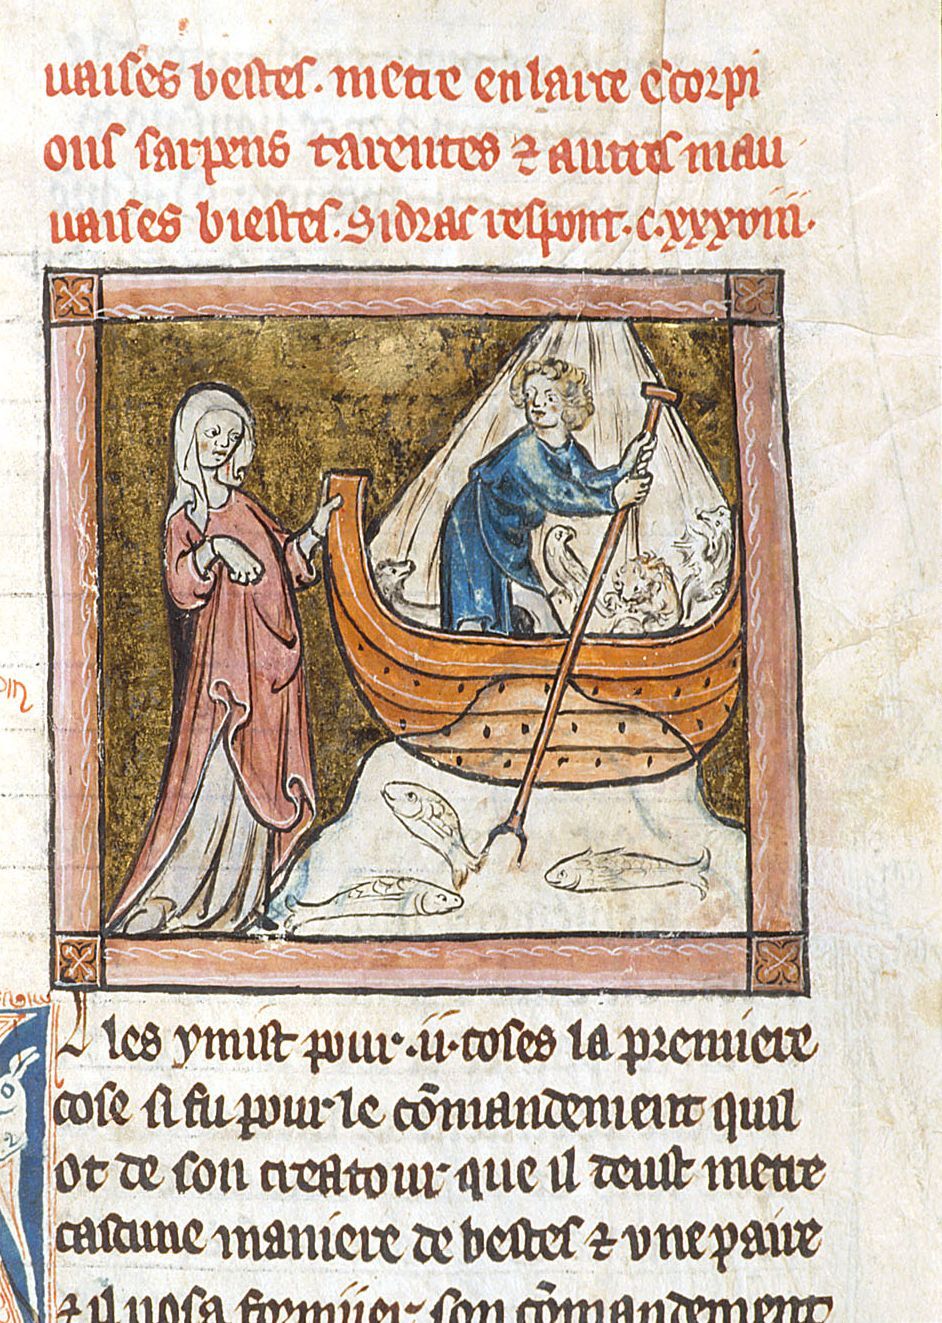 uaises bestes. metre en larce escorpi
ons sarpens tarentes ⁊ autres mau
uaises biestes. Sidrac respont. c.xxxviii.
les ymist pour .ii. coses la premiere
cose si fu pour le cōmandement quil
ot de son creatour que il deust metre
cascune maniere de bestes ⁊ vne paire
⁊ il nosa son cōmandement